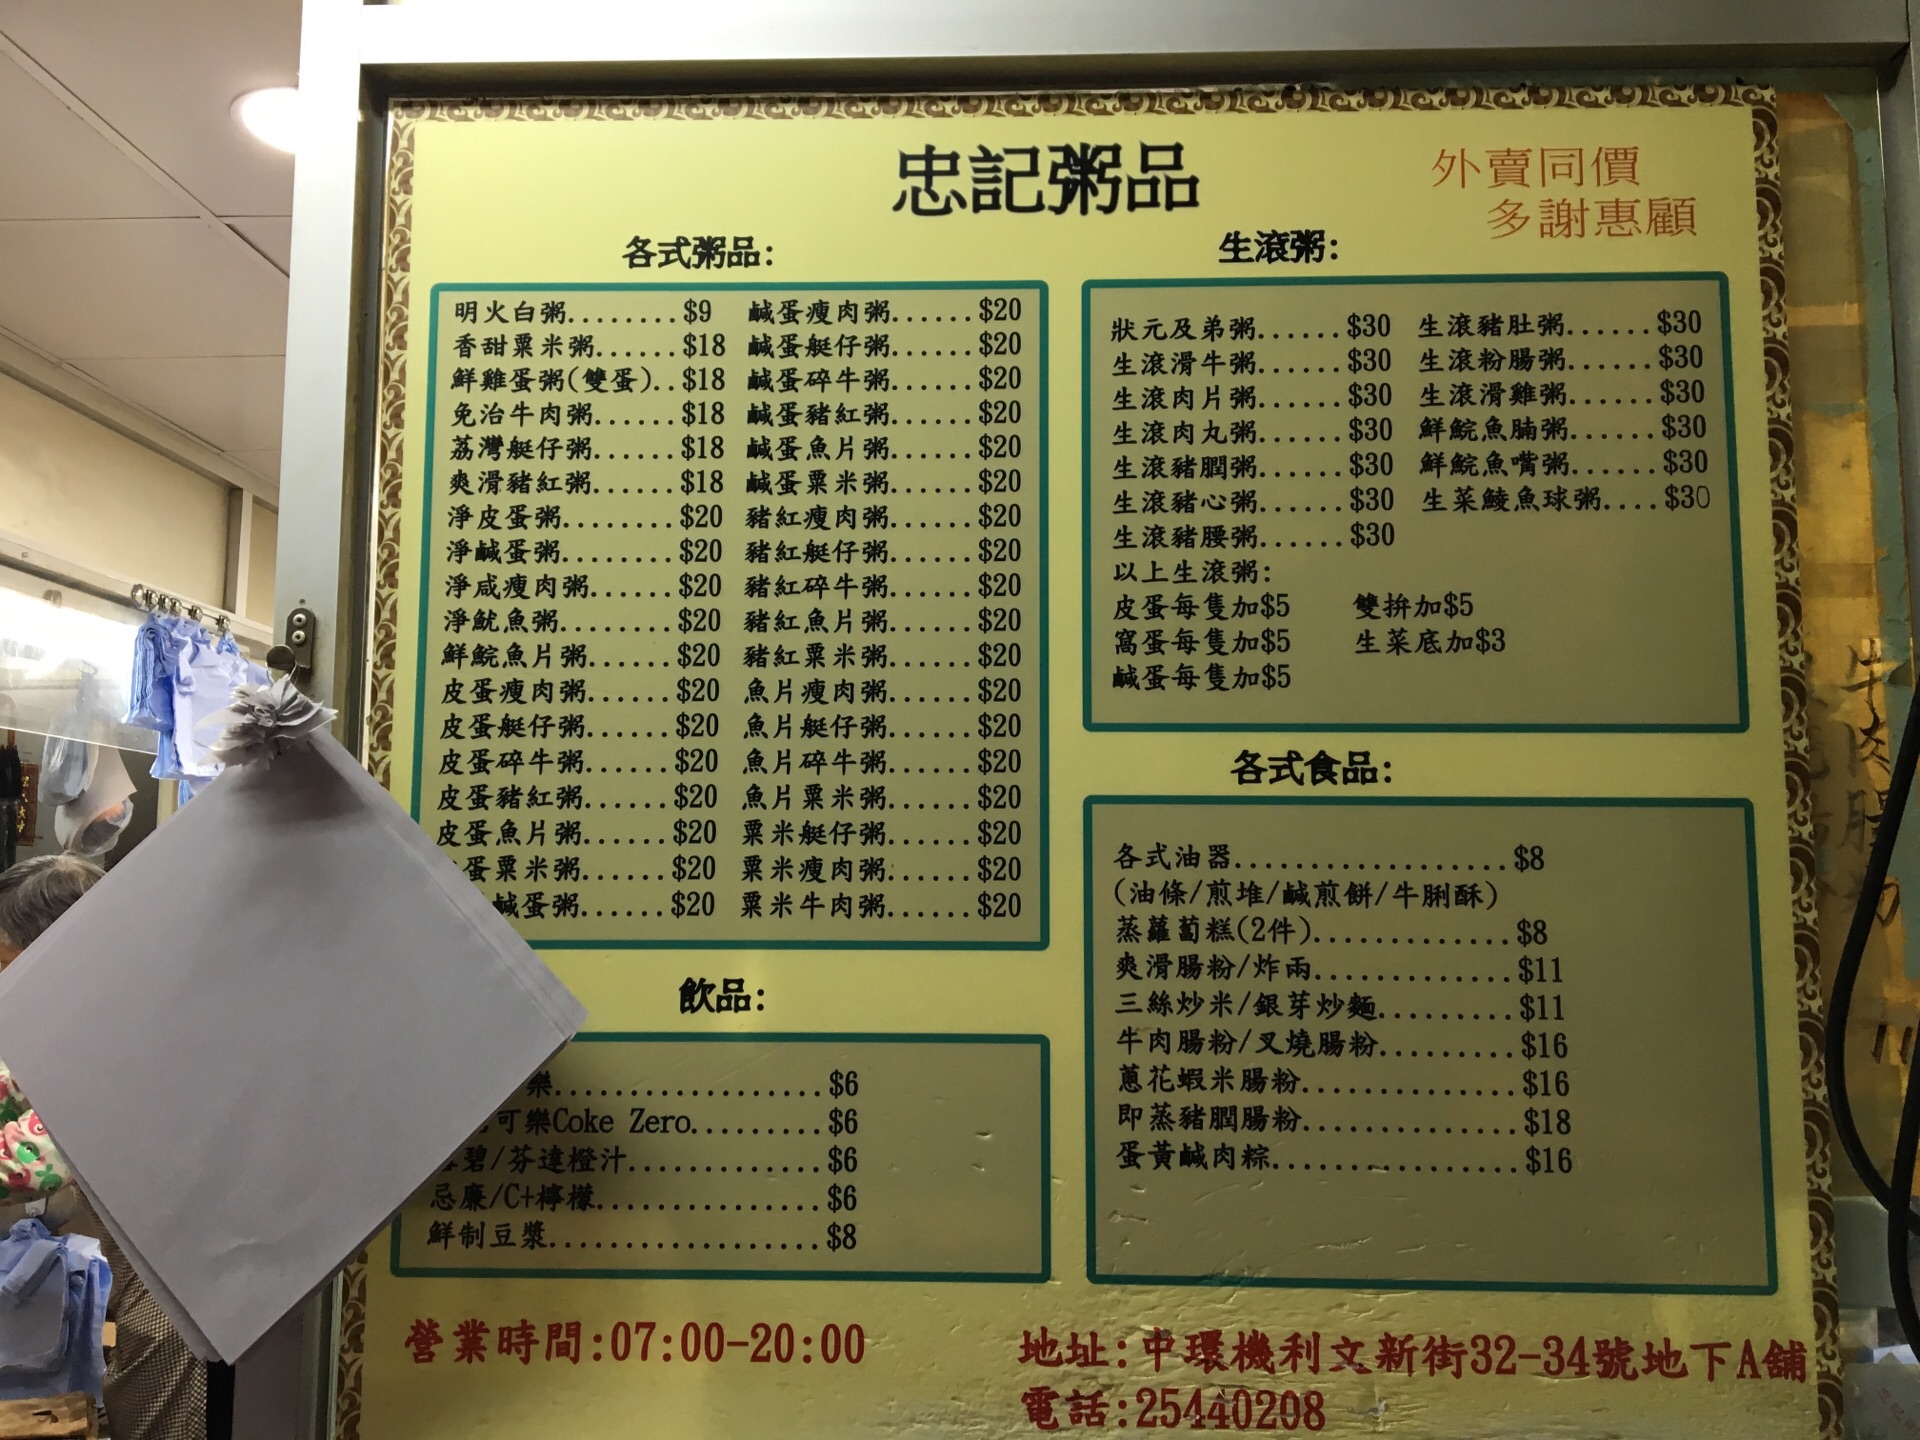 忠記粥品
外賣同價
多謝惠顧
各式粥品:
明火白粥........$9
香甜粟米粥......$18
鮮雞蛋粥(雙蛋)..$18
免治牛肉粥......$18
荔灣艇仔粥......$18
爽滑豬紅粥......$18
淨皮蛋粥........$20
淨鹹蛋粥........$20
淨咸瘦肉粥......$20
淨魷魚粥........$20
鮮鯇魚片粥......$20
皮蛋瘦肉粥......$20
皮蛋艇仔粥......$20
皮蛋碎牛粥......$20
皮蛋豬紅粥......$20
皮蛋魚片粥......$20
蛋粟米粥......$20
鹹蛋粥......$20
鹹蛋瘦肉粥......$20
鹹蛋艇仔粥......$20
鹹蛋碎牛粥......$20
鹹蛋豬紅粥......$20
鹹蛋魚片粥......$20
鹹蛋粟米粥......$20
豬紅瘦肉粥......$20
豬紅艇仔粥......$20
豬紅碎牛粥......$20
豬紅魚片粥......$20
豬紅粟米粥......$20
魚片瘦肉粥......$20
魚片艇仔粥......$20
魚片碎牛粥......$20
魚片粟米粥......$20
粟米艇仔粥......$20
粟米瘦肉粥......$20
粟米牛肉粥......$20
生滾粥:
狀元及弟粥......$30
生滾滑牛粥......$30
生滾肉片粥......$30
生滾肉丸粥......$30
生滾豬膶粥......$30
生滾豬心粥......$30
生滾豬腰粥......$30
生滾豬肚粥......$30
生滾粉腸粥......$30
生滾滑雞粥......$30
鮮鯇魚腩粥......$30
鮮鯇魚嘴粥......$30
生菜鯪魚球粥....$30
以上生滾粥:
皮蛋每隻加$5 雙拚加$5
窩蛋每隻加$5 生菜底加$3
鹹蛋每隻加$5
飲品:
樂..................$6
可樂Coke Zero.........$6
碧/芬達橙汁.............$6
忌廉/C+檸檬...............$6
鮮制豆漿..................$8
各式食品:
各式油器..................$8
(油條/煎堆/鹹煎餅/牛脷酥)
蒸蘿蔔糕(2件).............$8
爽滑腸粉/炸兩.............$11
三絲炒米/銀芽炒麵.........$11
牛肉腸粉/叉燒腸粉.........$16
蔥花蝦米腸粉..............$16
即蒸豬膶腸粉..............$18
蛋黃鹹肉粽................$16
營業時間:07:00-20:00
地址:中環機利文新街32-34號地下A舖
電話:25440208